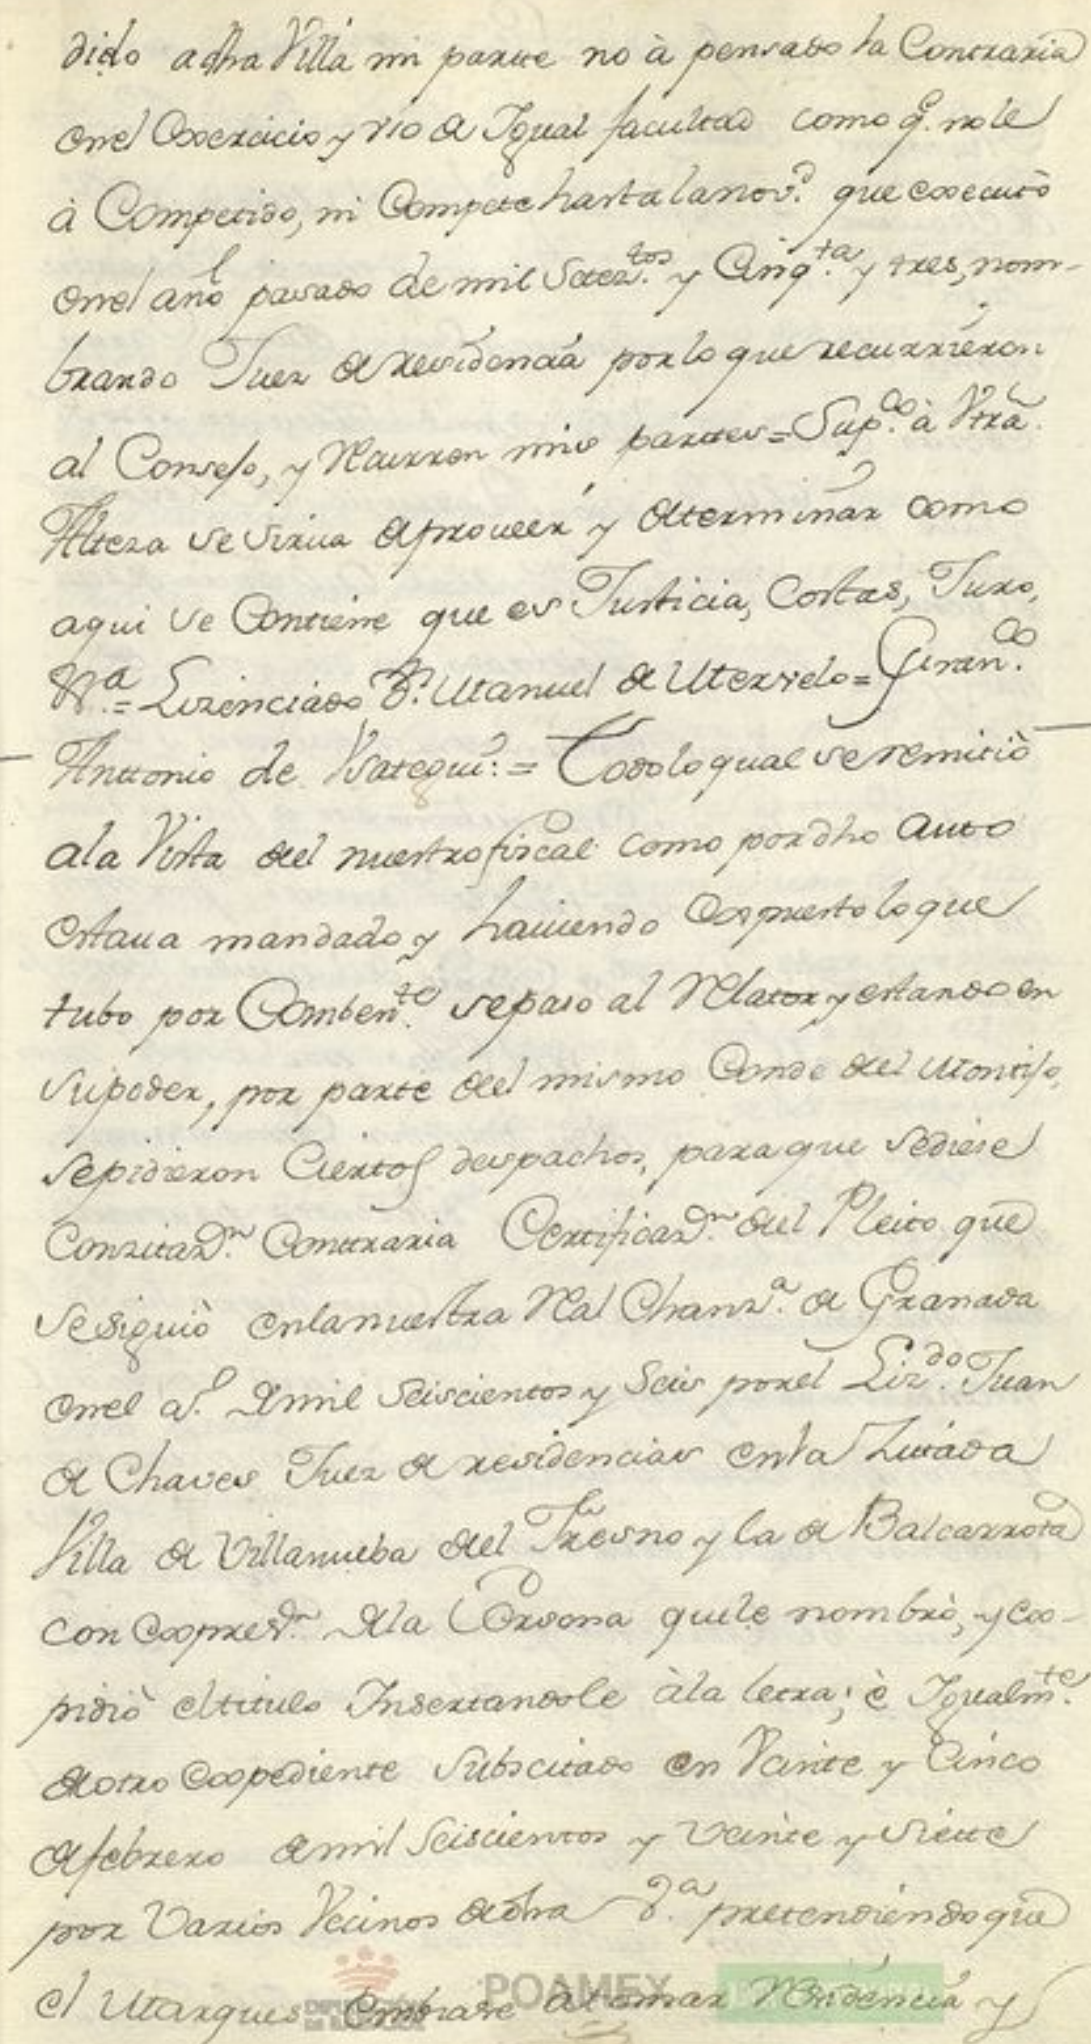 dido a dha Villa mi parte no à pensado la Contraria
en el Exercicio y vso de Igual facultad como q.e no le
à Competido, ni Compete hasta la nov.d que executò
en el año pasado de mil Setez.tos y Cinq.ta y tres, nom-
brando Juez de residencia por lo que recurrieron
al Consejo, y Recurren mis partes = Sup.co à Vtrã
Alteza se sirva de proveer y determinar como
aqui se Contiene que es Justicia, Costas, Juro,
&.a = Lizenciado D.n Manuel de Merselo = Fran.co
Anttonio de Ysategui: = Todo lo qual se remitiò
a la Vista del nuestro fiscal como por dho Auto
estaua mandado y hauiendo Expuesto lo que
tubo por Comben.te se paso al Relator y estando en
su poder, por parte del mismo Conde del Montijo,
se pidieron Ciertos despachos, para que se diese
Con zitaz.n Conttraria Certificaz.n del Pleito que
se siguiò en la nuestra Rl Chanz.a de Granada
en el a.o de mil seiscientos y seis por el Liz.do Juan
de Chaves Juez de residencias en la Zitada
Villa de Villanueba del Fresno y la de Balcarrota
con Expres.n de la Persona que le nombrò, y Ex-
pidiò el titulo Insertandole à la letra; è Igualm.te
de otro Expediente Subscitado en Veinte y Cinco
de febrero de mil Seiscientos y Veinte y Siette
por Varios Vecinos de dha V.a pretendiendo que
el Marques Embiase a tomar Residencia y
DIPUTACIÓN
POAMEX